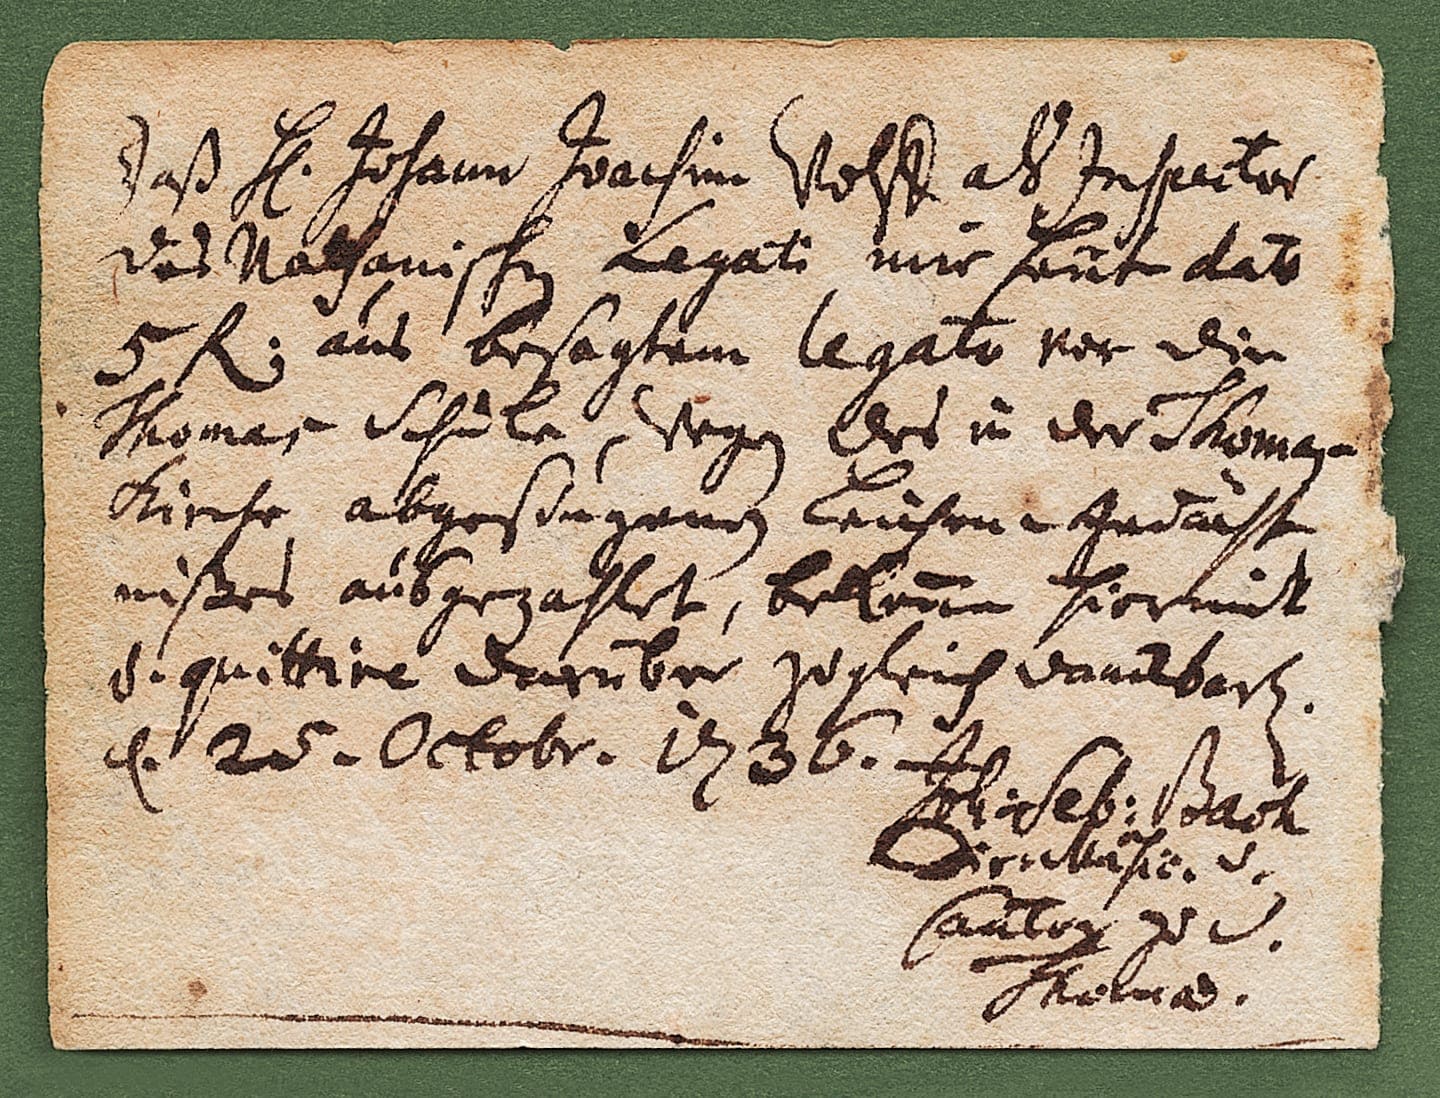 Daß H. Johann Joachim als Inspector
des Nathanischen Legati mir heute dato
5 R: aus besagtem legato vor die
Thomas Schule, wegen des in der Thomas-
Kirche abgesungenen Leichen-Gedächt
nißes ausgezahlet, bekenne hiermit
u. quittire darüber zugleich danckbarl.
d. 25. Octobr. 1736.
Joh: Seb: Bach
Dir: Music. u.
Cantor zu S.
Thomas.